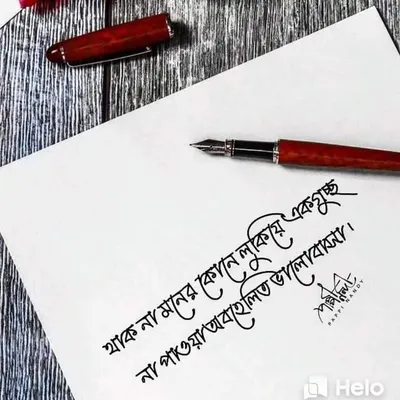 থাক না মনের কোনে লুকিয়ে একগুচ্ছ
না পাওয়া অবহেলিত ভালোবাসা।
PAPPI NANDY
Helo